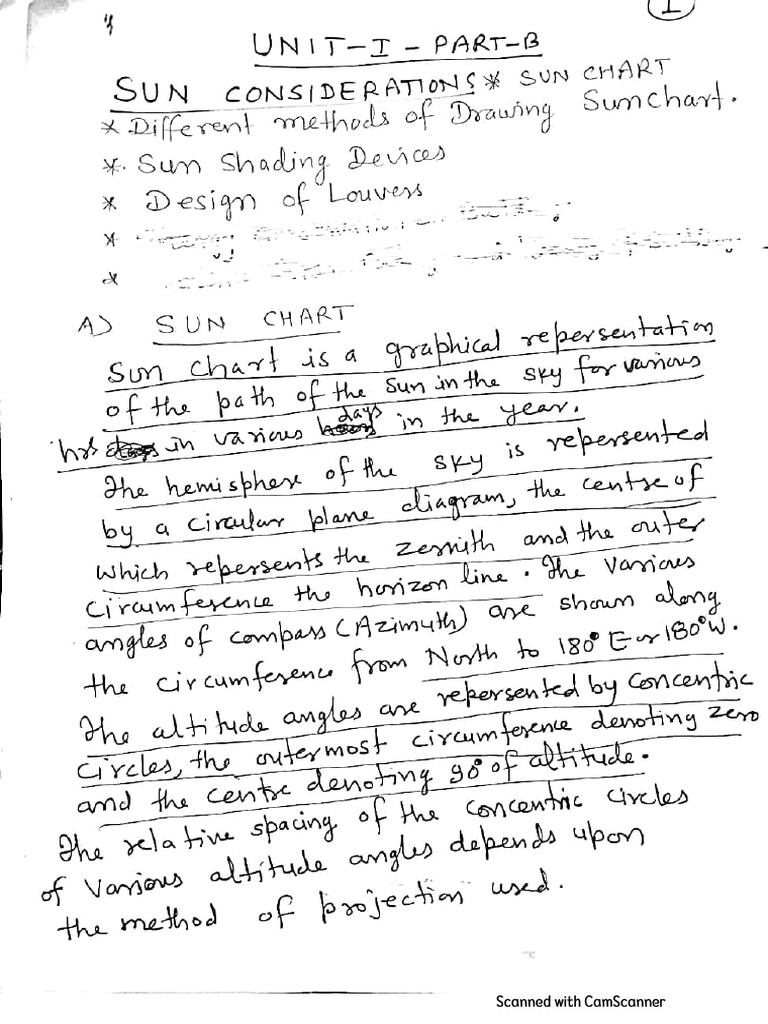 1
UNIT-I - PART-B
SUN CONSIDERATIONS * SUN CHART
* Different methods of Drawing Sunchart.
* Sun Shading Devices
* Design of Louvers
*
*
A) SUN CHART
Sun chart is a graphical repersentation
of the path of the sun in the sky for various
hrs in various days in the year.
The hemisphere of the sky is repersented
by a circular plane diagram, the centre of
which repersents the zennith and the outer
circumference the horizon line. The various
angles of compass (Azimuth) are shown along
the circumference from North to 180° E or 180° W.
The altitude angles are repersented by concentric
circles, the outermost circumference denoting zero
and the centre denoting 90° of altitude.
The relative spacing of the concentric circles
of various altitude angles depends upon
the method of projection used.
Scanned with CamScanner